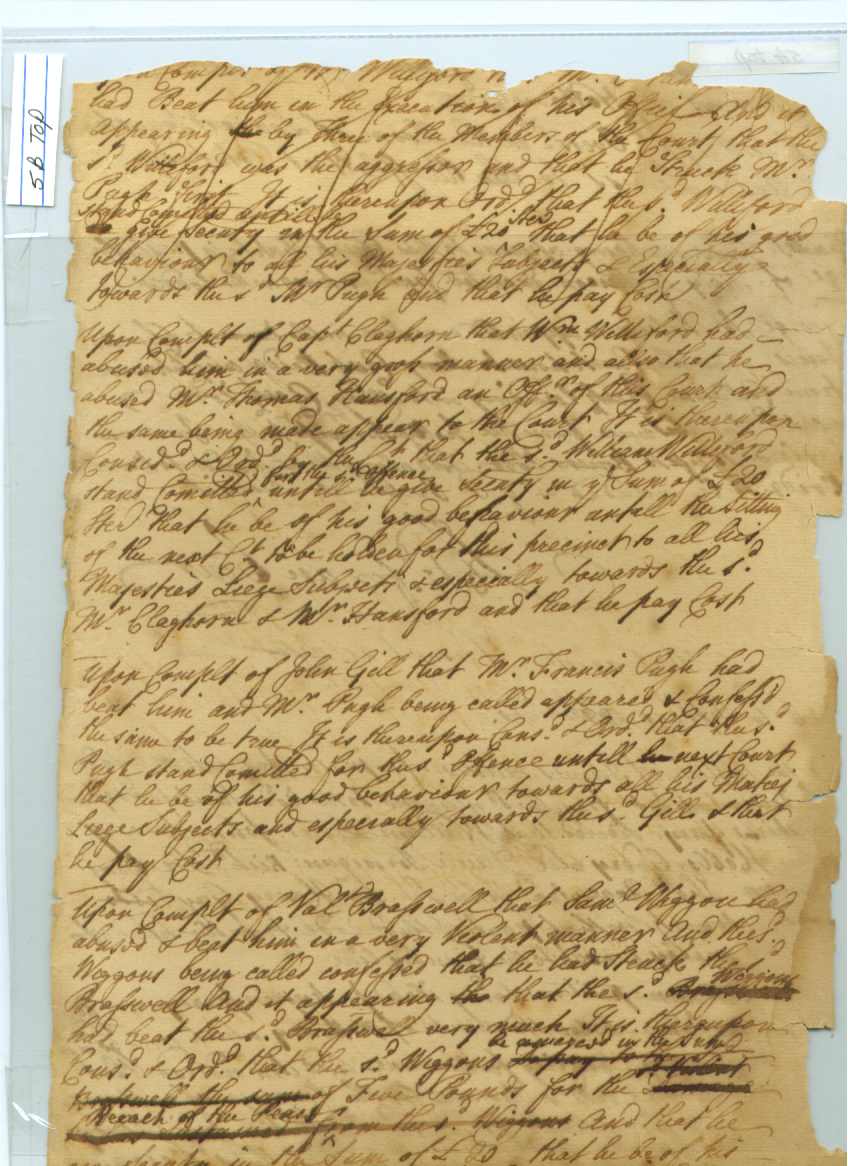 5B TOP
had Beat him in the Execution of his Offic And it
appearing by three of the Members of the Court that the
sd. Williford was the aggressor and that he Struck Mr.
Pugh first It is thereupon Ordd. that the sd. Williford
stand Comitted untill he
give Security in the Sum of £20 Ster that he be of his good
behaviour to all his Majesties Subjects & Especially
towards the sd. Mr Pugh and that he pay Cost
Upon Complt of Capt Claghorn that Wm Williford had
abused him in a very gross manner and also that he
abused Mr. Thomas Hansford an Offr. of this Court and
the same being made appear to the Court It is thereupon
Consd. & Ordd. by the Ct that the sd. William Williford
for the sd. Offence
stand Comitted untill he give Security in ye Sum of £20
Ster that he be of his good behaviour untill the Sitting
of the next Ct to be holden for this precinct to all his
Majesties Liege Subjects & especially towards the sd.
Mr. Claghorn & Mr. Hansford and that he pay Cost
Upon Complt of John Gill that Mr. Francis Pugh had
beat him and Mr. Pugh being called appeared & Confess'd
the same to be true It is thereupon Consd. & Ordd. that the sd.
Pugh stand Comitted for the sd. Offence untill next Court
that he be of his good behaviour towards all his Maties
Liege Subjects and especially towards the sd. Gill & that
he pay Cost
Upon Complt of Valt Brasswell that Saml Wiggon had
abused & beat him in a very Violent manner And the sd.
Wiggons being called confessed that he had Struck the sd.
Wiggons
Brasswell And it appearing that the sd.
had beat the sd. Brasswell very much It is thereupon
be amerced in the Sum
Consd. & Ordd. that the sd. Wiggons
of Five Pounds for the
Breach of the Peace
from the sd. Wiggons And that he
Security in the Sum of £20 that he be of his